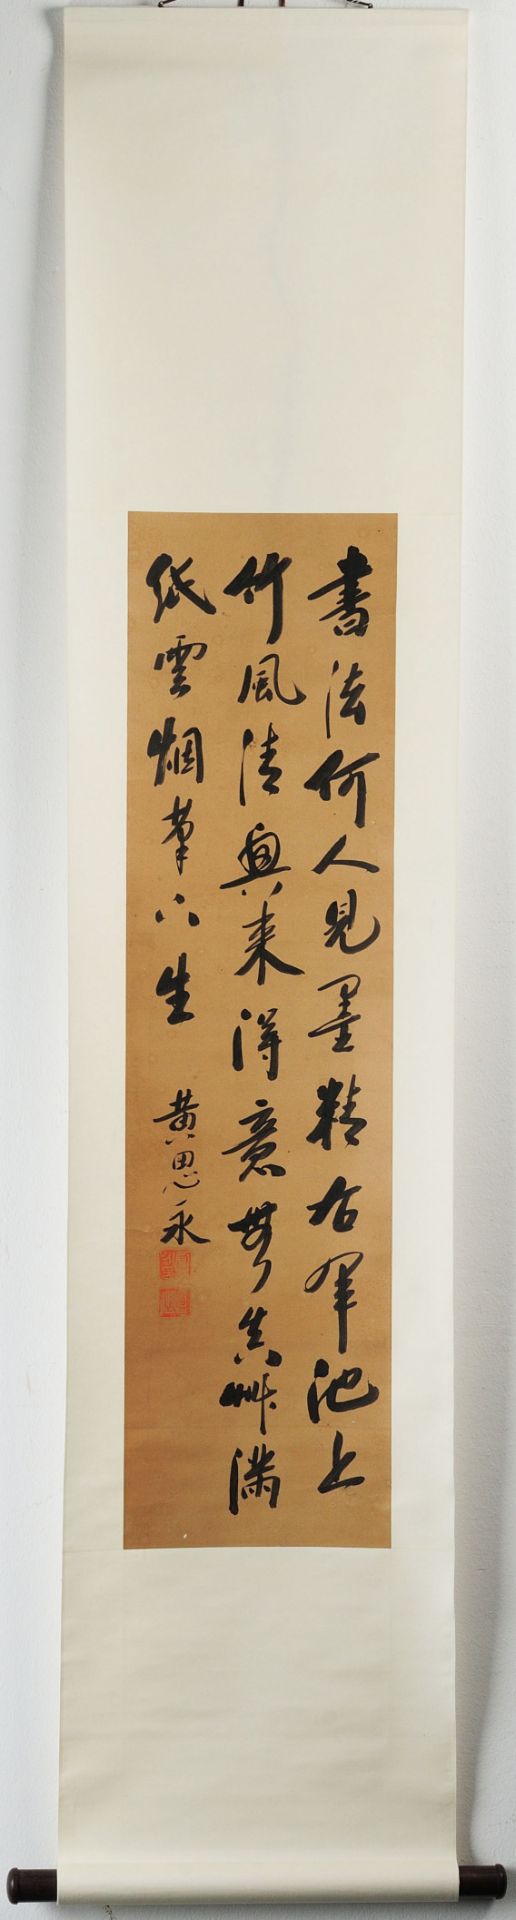 書法何人見墨精右軍池上
竹風清興來得意書真艸滿
紙雲烟筆下生
黃思永